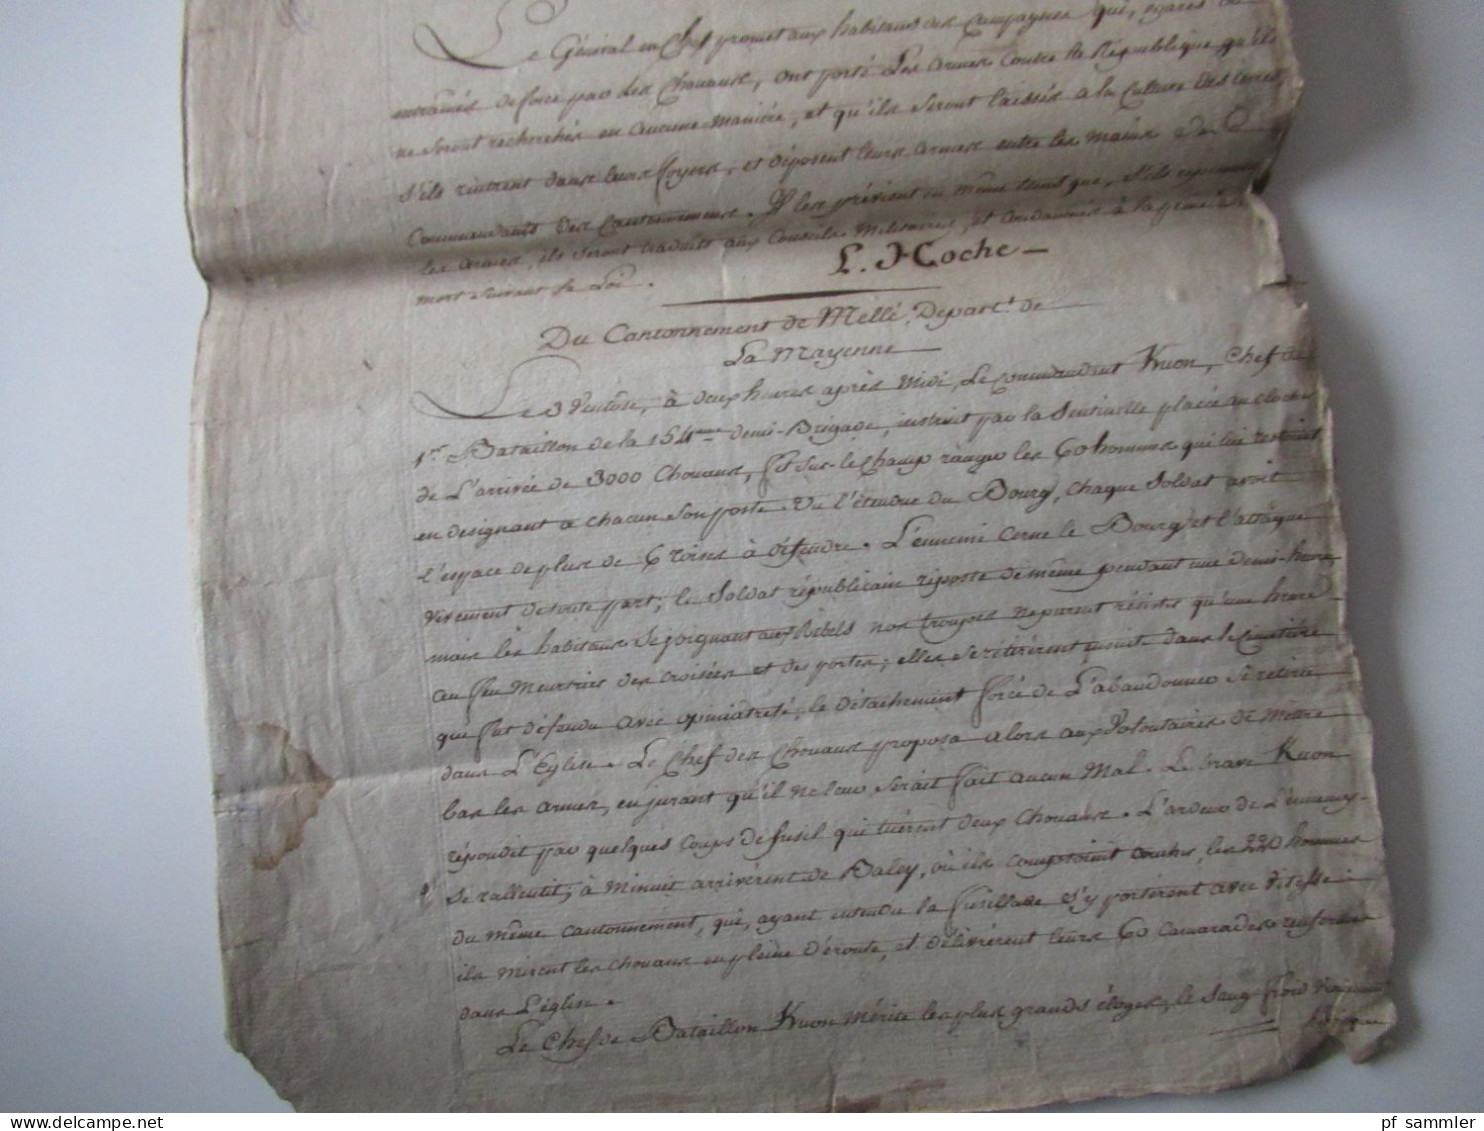 Le Général en Chef promet aux habitans des Campagnes que,
entrainés de force par les Chouans, ont porté les armes contre la République, qu'ils
ne seront recherchés en aucune manière, et qu'ils seront laissés à la culture des terres,
s'ils rentrent dans leurs foyers, et déposent leurs armes entre les mains des
Commandants des Cantonnemens. Il les prévient en même tems que, s'ils reprennent
les armes, ils seront traduits aux Conseils Militaires, et condamnés à la peine de
mort suivant la Loi.
L. Hoche
Du Cantonnement de Mellé, Depart.t de
La Mayenne
Le 3 Ventôse, à deux heures après Midi, Le commandant Kuon, Chef de
1.er Bataillon de la 154eme demi-Brigade, instruit par la Sentinelle placée au clocher
de L'arrivée de 3000 Chouans, fit sur-le-champ ranger les 60 hommes qui lui restoient
en designant à chacun son poste. Vu l'étendue du Bourg, chaque Soldat avoit
l'espace de plus de 6 toises à défendre. L'ennemi cerne le Bourg et l'attaque
vivement de toute part; le Soldat républicain riposte de même pendant une demi-heure
mais les habitans se joignant aux Rebels nos troupes ne purent résister qu'une heure
au feu meurtrier des croisées et des portes; elles se retirèrent ensuite dans le Cimetière
qui fut défendu avec opiniâtreté; le détachement forcé de L'abandonner se retire
dans L'Eglise. Le Chef des Chouans proposa alors aux Volontaires de mettre
bas les armes, en jurant qu'il ne leur serait fait aucun Mal. Le brave Kuon
répondit par quelques coups de fusil qui tuèrent deux Chouans. L'ardeur de L'ennemy
se rallentit; à minuit arrivèrent de Baley, où ils comptoient coucher, les 220 hommes
du même cantonnement, qui, ayant entendu la fusillade s'y portèrent avec vitesse
ils mirent les chouans en pleine déroute, et délivrèrent leurs 60 camarades renfermés
dans L'église.
Le Chef de Bataillon Kuon mérite les plus grands éloges, le sang froid
pf sammler